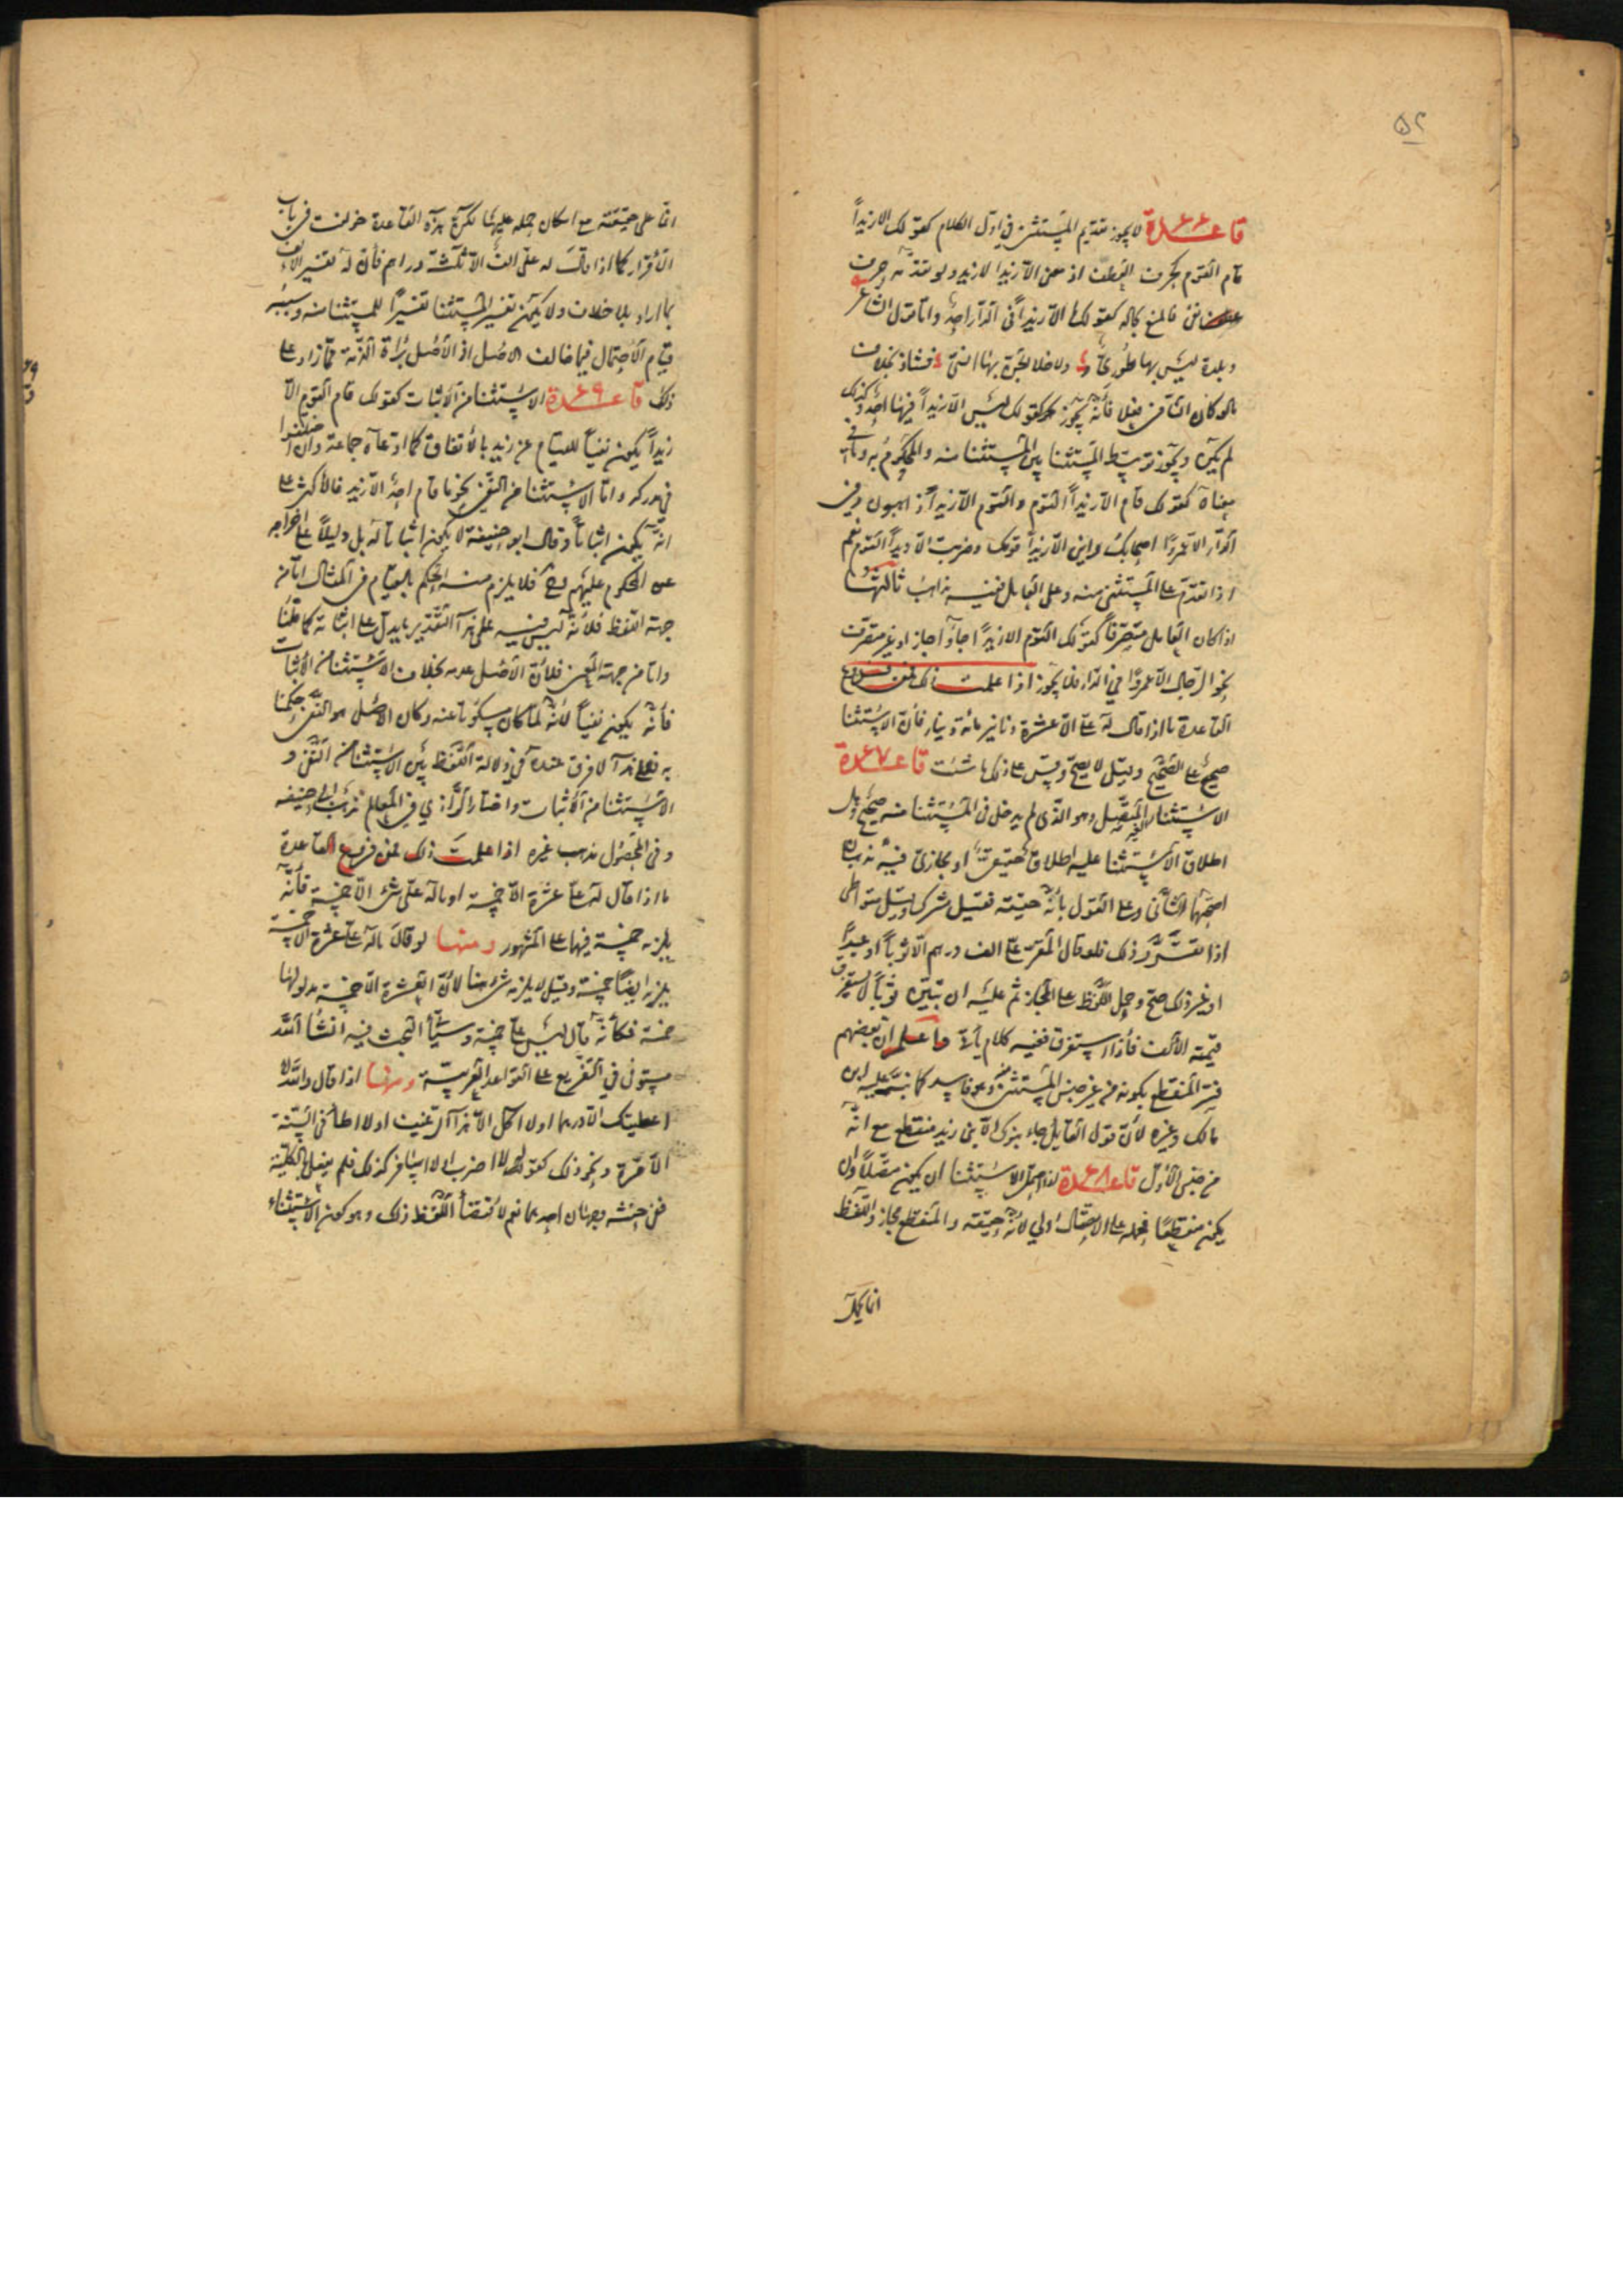 ۵۲
قاعدة ۶۶ لا يجوز تقديم المستثنى في اول الكلام كقولك الا زيداً
قام القوم كحرف العطف اذ معنى الا زيدا لا زيد ولو تقدمه حرف
نفى فالمنع بحاله كقولك ما الا زيداً في الدار احد واما قول الشاعر
وبلدة ليس بها طوري ولا خلا الجن بها انسي فشاذ بخلاف
ما لو كان النافي فعلا فأنه يجوز كقولك ليس الا زيداً فيها احد وكذلك
لم يكن ويجوز توسط المستثنا بين المستثنا منه والمحكوم به وما في
معناه كقولك قام الا زيداً القوم والقوم الا زيداً ذاهبون وفي
الدار الا عمروًا اصحابك واين الا زيداً قومك وضربت الا زيداً القوم نعم
اذا تقدم على المستثنى منه وعلى العامل ففيه مذاهب ثالثها
اذا كان العامل متصرفاً كقولك القوم الا زيدًا جاؤا جاز او غير متصرف
نحو الرجال الا عمروًا في الدار فلا يجوز اذا علمت ذلك فمن فروع
القاعدة ما اذا قال له على الا عشرة دنانير مائة دينار فأن الاستثنا
صحيح على الصحيح وقيل لا يصح وقس على ذلك ما شئت قاعدة ۶۷
الاستثنا الغير المتصل وهو الذي لم يدخل في المستثنا منه صحيح وهل
اطلاق الاستثنا عليه اطلاق حقيقى او مجازى فيه مذهبان
اصحهما الثاني وعلى القول بأنه حقيقة فقيل مشترك وقيل متواطى
اذا تقرر ذلك فلو قال المقر على الف درهم الا ثوباً او عبداً
او غير ذلك صح وحمل اللفظ على المجاز ثم عليه ان يبين ثوباً لا يستغرق
قيمته الالف فأذا استغرق ففيه كلام يأتى واعلم ان بعضهم
فسر المنقطع بكونه من غير جنس المستثنى منه وهو فاسد كما نبه عليه ابن
مالك وغيره لأن قول القايل جاء بنوك الا بنى زيد منقطع مع انه
من جنس الأول قاعدة ۶۸ اذا احتمل الاستثنا ان يكون متصلاً وان
يكون منقطعًا فحمله على الاتصال اولى لأنه حقيقة والمنقطع مجاز واللفظ
انما يحمل
انما على حقيقته مع امكان حمله عليها لكن هذه القاعدة خولفت في باب
الأقرار كما اذا قال له على الف الا ثلثة دراهم فأن له تفسير الألف
بما اراد بلا خلاف ولا يكون تفسير المستثنا تفسيرًا للمستثنا منه وسببه
قيام الأحتمال فيما خالف الأصل اذ الأصل براءة الذمة مما زاد على
ذلك قاعدة ۶۹ الاستثنا من الأثبات كقولك قام القوم الا
زيداً يكون نفياً للقيام عن زيد بالأتفاق كما ادعاه جماعة وان اختلفوا
في مدركه واما الاستثنا من النفى نحو ما قام احد الا زيد فالأكثر على
انه يكون اثباتاً وقال ابو حنيفة لا يكون اثباتا له بل دليلاً على اخراجه
عن المحكوم عليهم وح فلا يلزم منه الحكم بالقيام في المثال اما من
جهة اللفظ فلأنه ليس فيه على هذا التقدير ما يدل على اثباته كما قلنا
واما من جهة المعنى فلأن الأصل عدمه بخلاف الاستثنا من الأثبات
فأنه يكون نفياً لأنه لما كان مسكوتا عنه وكان الأصل هو النفى حكمنا
به فعلى هذا لا فرق عنده في دلالة اللفظ بين الاستثنا من النفى و
الاستثنا من الأثبات واختار الرازي في المعالم مذهب ابى حنيفه
وفى المحصول مذهب غيره اذا علمت ذلك فمن فروع القاعدة
ما اذا قال له على عشرة الا خمسة او ماله على شى الا خمسة فأنه
يلزمه خمسة فيهما على المشهور ومنها لو قال ماله على عشرة الا خمسة
يلزمه ايضًا خمسة وقيل لا يلزمه شى هنا لأن العشرة الا خمسة مدلولها
خمسة فكأنه قال ليس على خمسة وسيأتى البحث فيه انشا الله
مستوفى في التفريع على القواعد العربية ومنها اذا قال والله لا
اعطيتك الا درهما او لا اكل الا هذا الرغيف او لا اطأ في السنة
الا مرة ونحو ذلك كقوله لا اضرب او لا اسافر كذلك فلم يفعل بالكلية
ففى حنثه وجهان احدهما نعم لأقتضأ اللفظ ذلك وهو كون الاستثناء